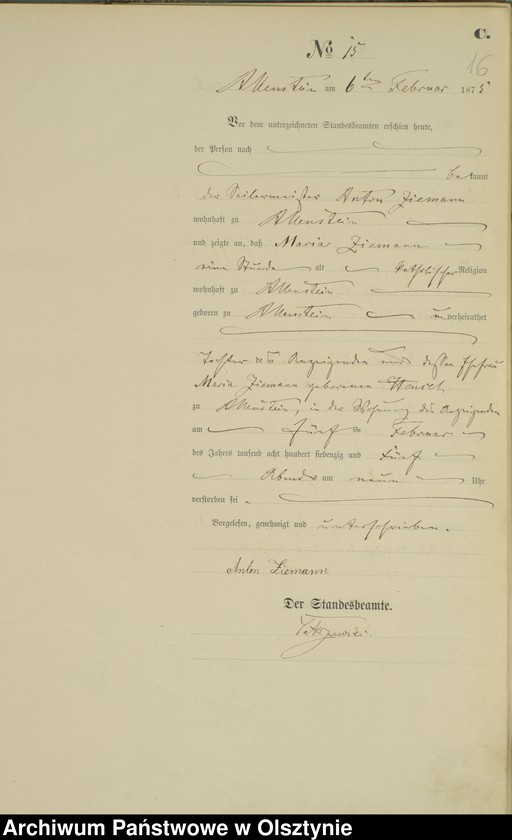 C.
No 15
16
Allenstein am 6ten Februar 1875
Vor dem unterzeichneten Standesbeamten erschien heute,
der Person nach
bekannt
der Seilermeister Anton Ziemann
wohnhaft zu Allenstein
und zeigte an, daß Maria Ziemann
eine Stunde alt katholischer Religion
wohnhaft zu Allenstein
geboren zu Allenstein unverheirathet
Tochter des Anzeigenden und dessen Ehefrau
Maria Ziemann geborenen
zu Allenstein, in der Wohnung des Anzeigenden
am fünften Februar
des Jahres tausend acht hundert siebenzig und fünf
Abends um neun Uhr
verstorben sei.
Vorgelesen, genehmigt und unterschrieben.
Anton Ziemann
Der Standesbeamte.
Archiwum Państwowe w Olsztynie